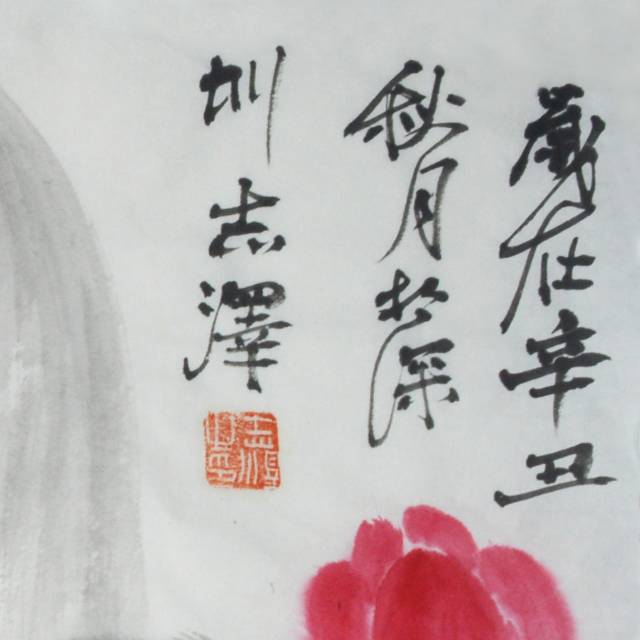 歲在辛丑
秋月於深
圳志澤